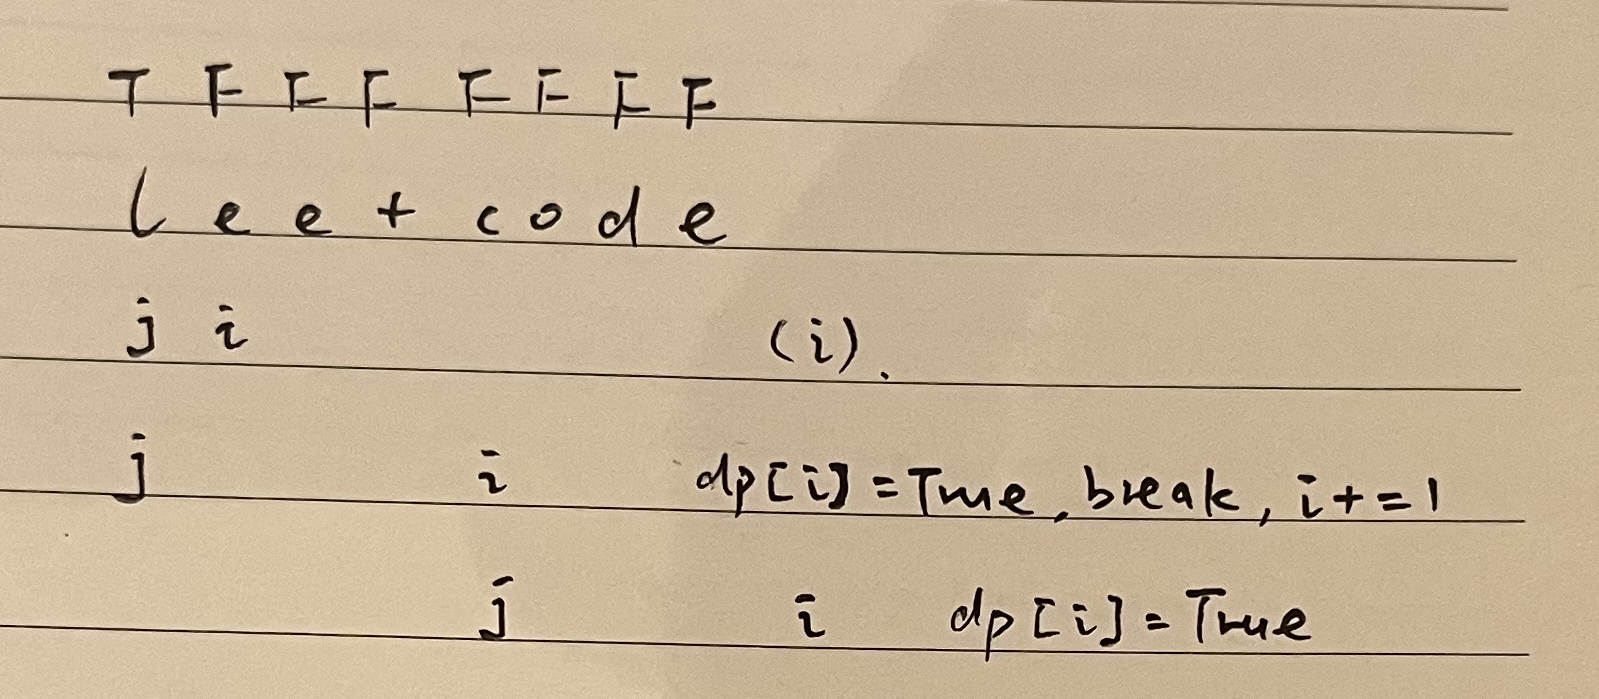 T F F F F F F F
l e e t c o d e
j i (i).
j i dp[i]=True, break, i+=1
j i dp[i]=True